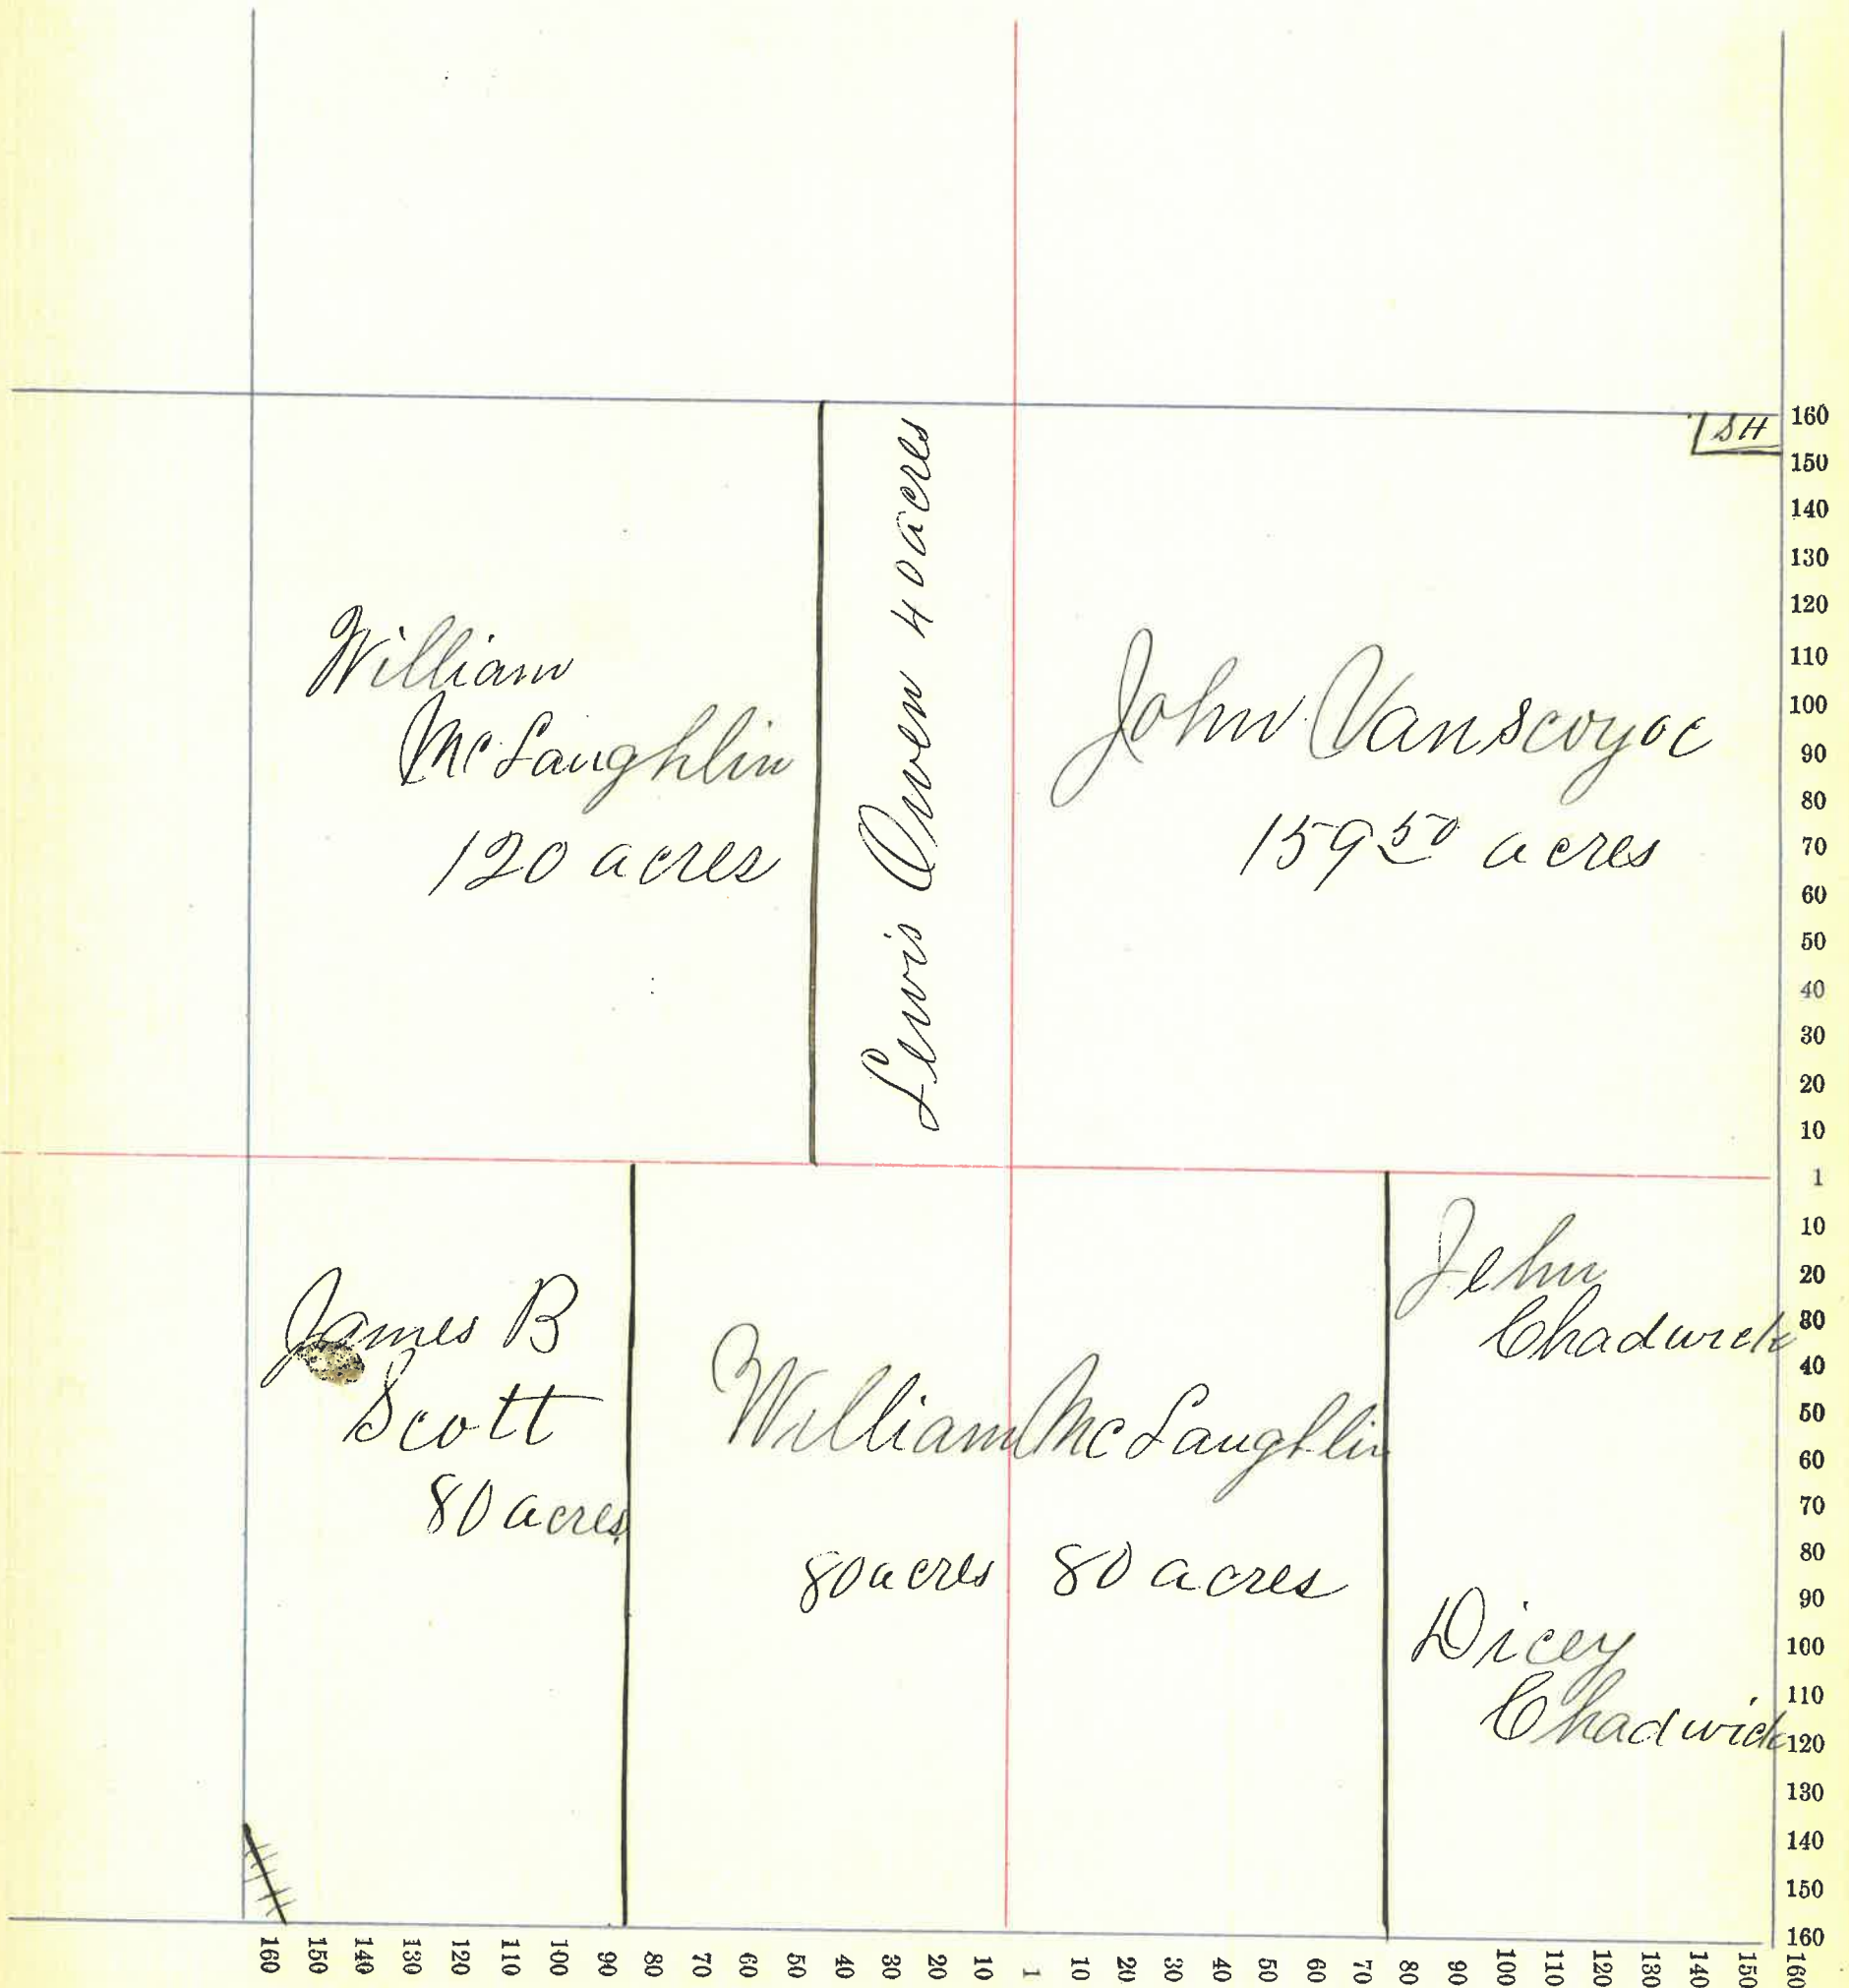 SH
William
McLaughlin
120 acres
Lewis Owen 40 acres
John Vanscoyoc
159 50 acres
James B
Scott
80 acres
William McLaughlin
80 acres 80 acres
Jehu
Chadwick
Dicey
Chadwick
160
150
140
130
120
110
100
90
80
70
60
50
40
30
20
10
1
10
20
30
40
50
60
70
80
90
100
110
120
130
140
150
160
160 150 140 130 120 110 100 90 80 70 60 50 40 30 20 10 1 10 20 30 40 50 60 70 80 90 100 110 120 130 140 150 160